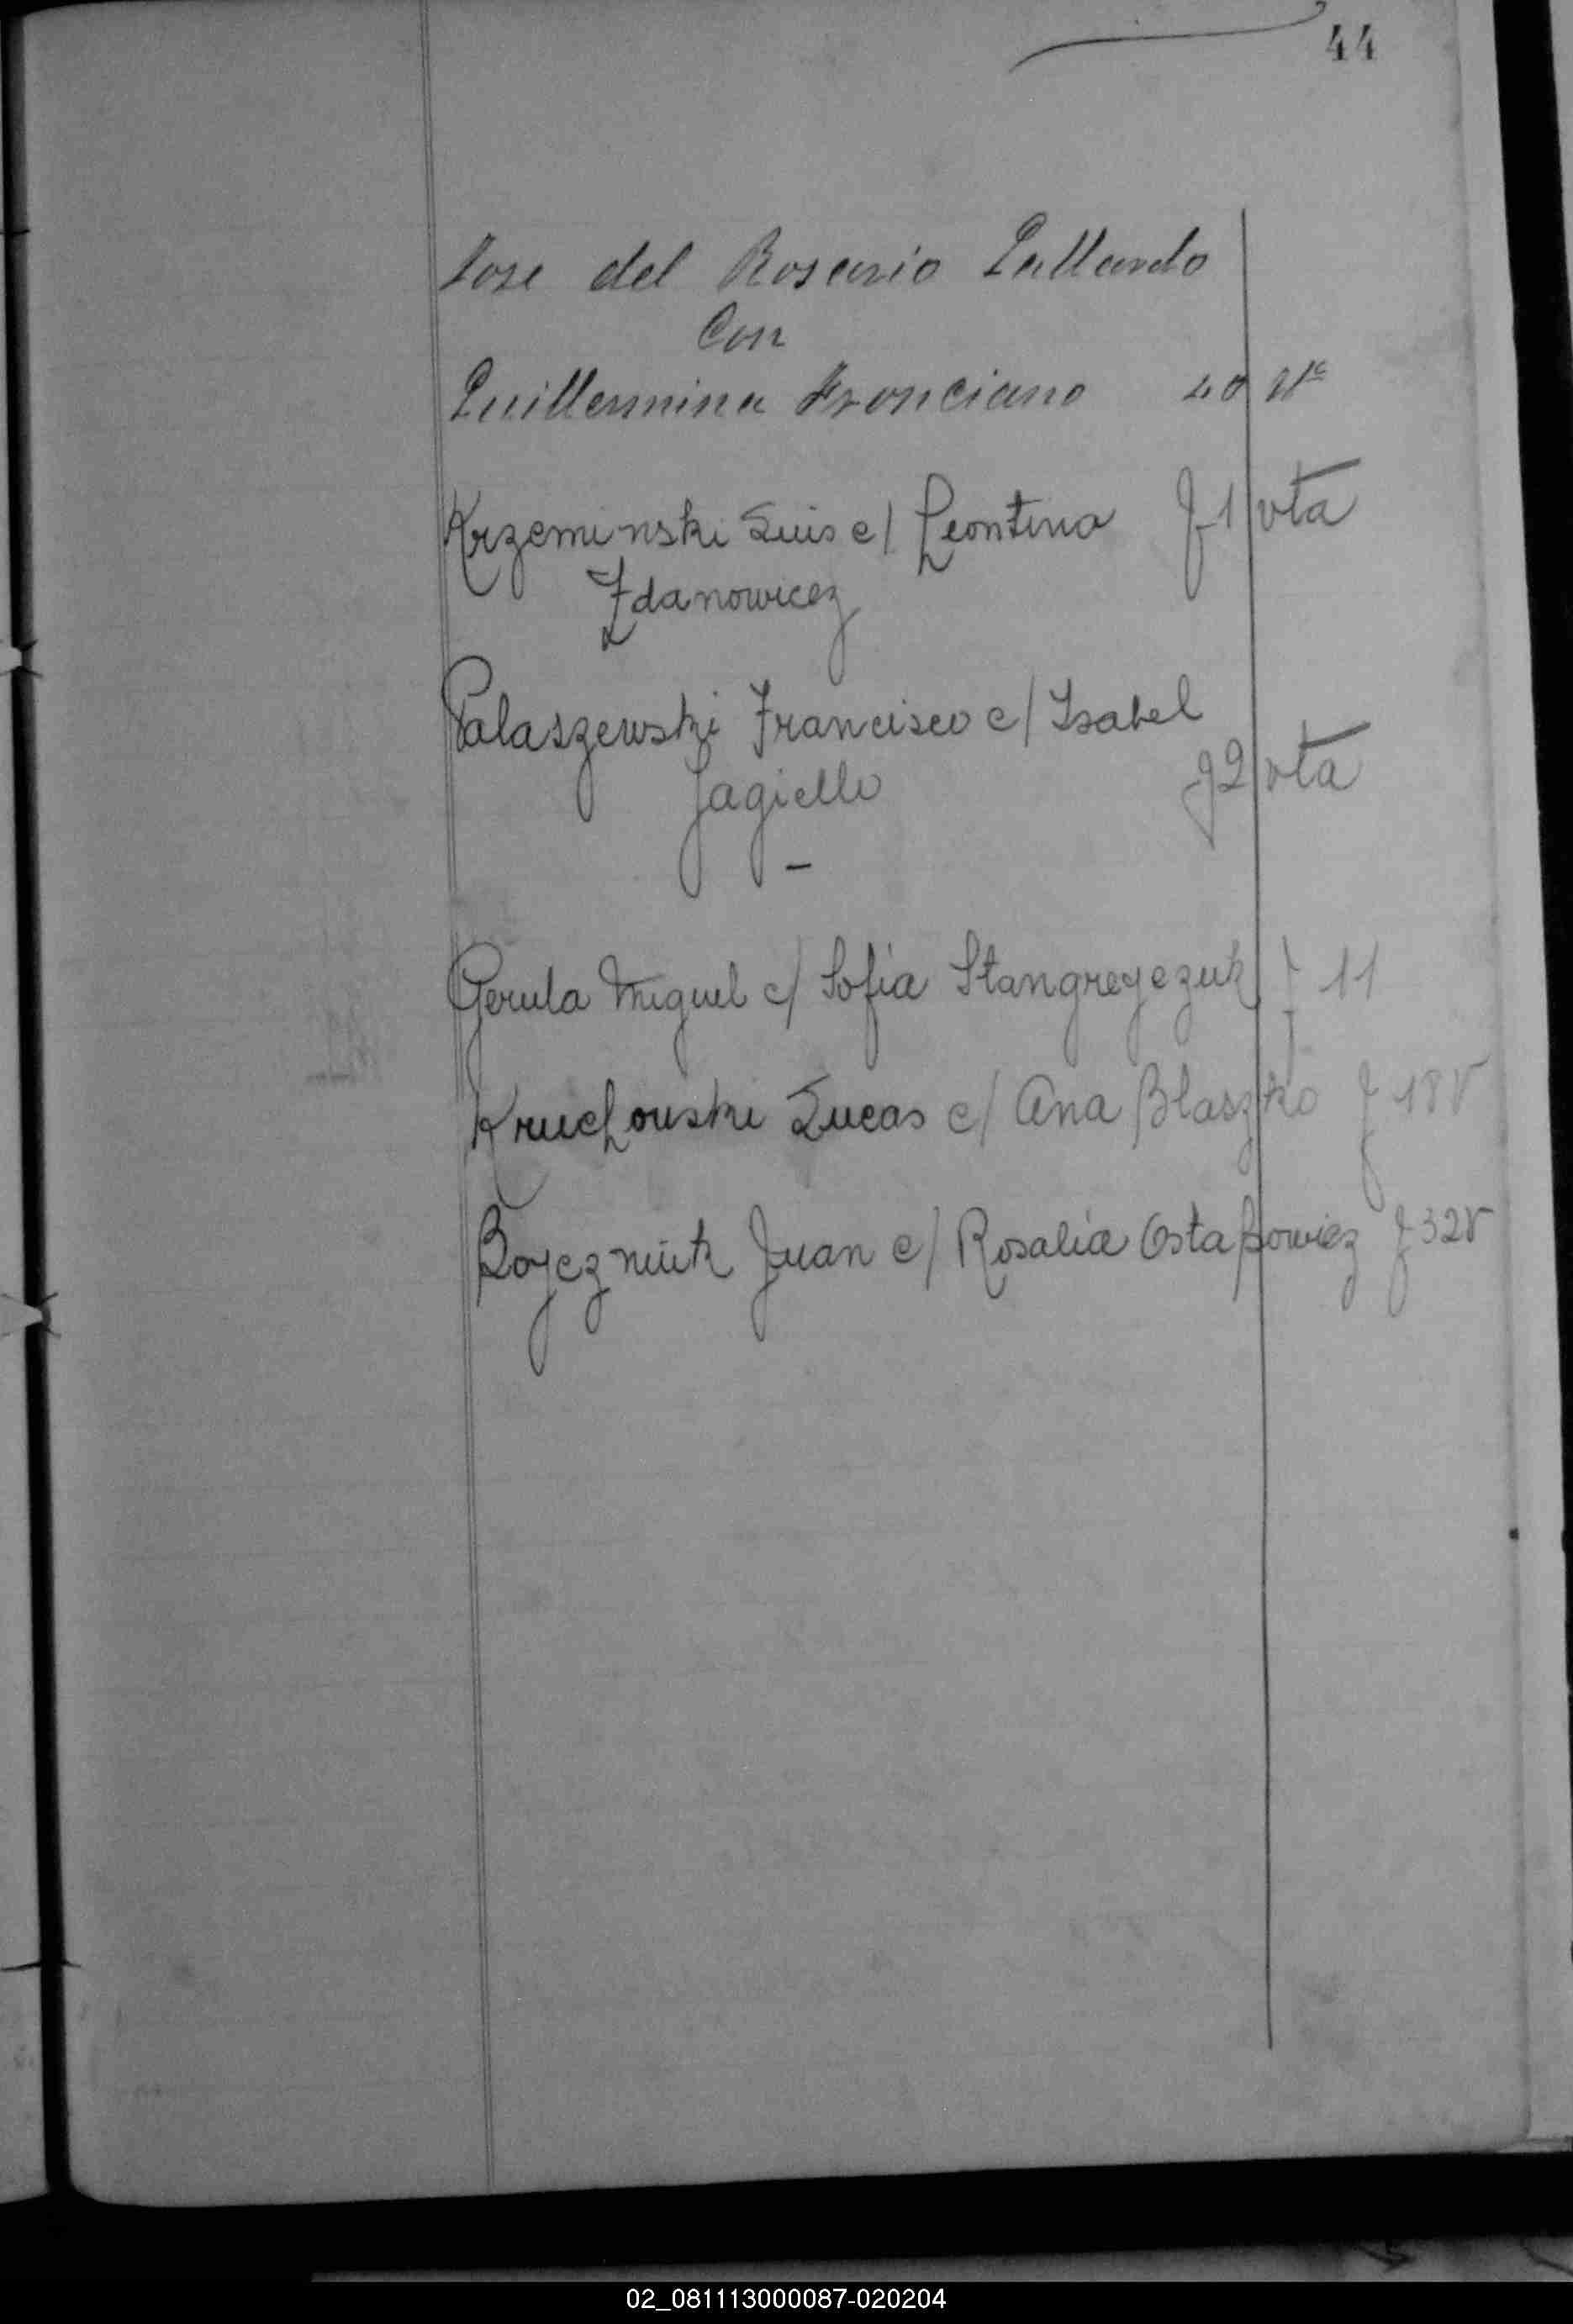 44
Jose del Rosario Gallardo
Con
Guillermina Fronciano 40 Vta
Krzeminski Luis c/ Leontina f 1 vta
Zdanowicez
Palaszewski Francisco c/ Isabel
Jagiello f 2 vta
Gerula Miguel c/ Sofia Stangreyezuk f 11
Kruchouski Lucas c/ Ana Blaszko f 18V
Boyczniuk Juan c/ Rosalia Ostapowiez f 32V
02_081113000087-020204